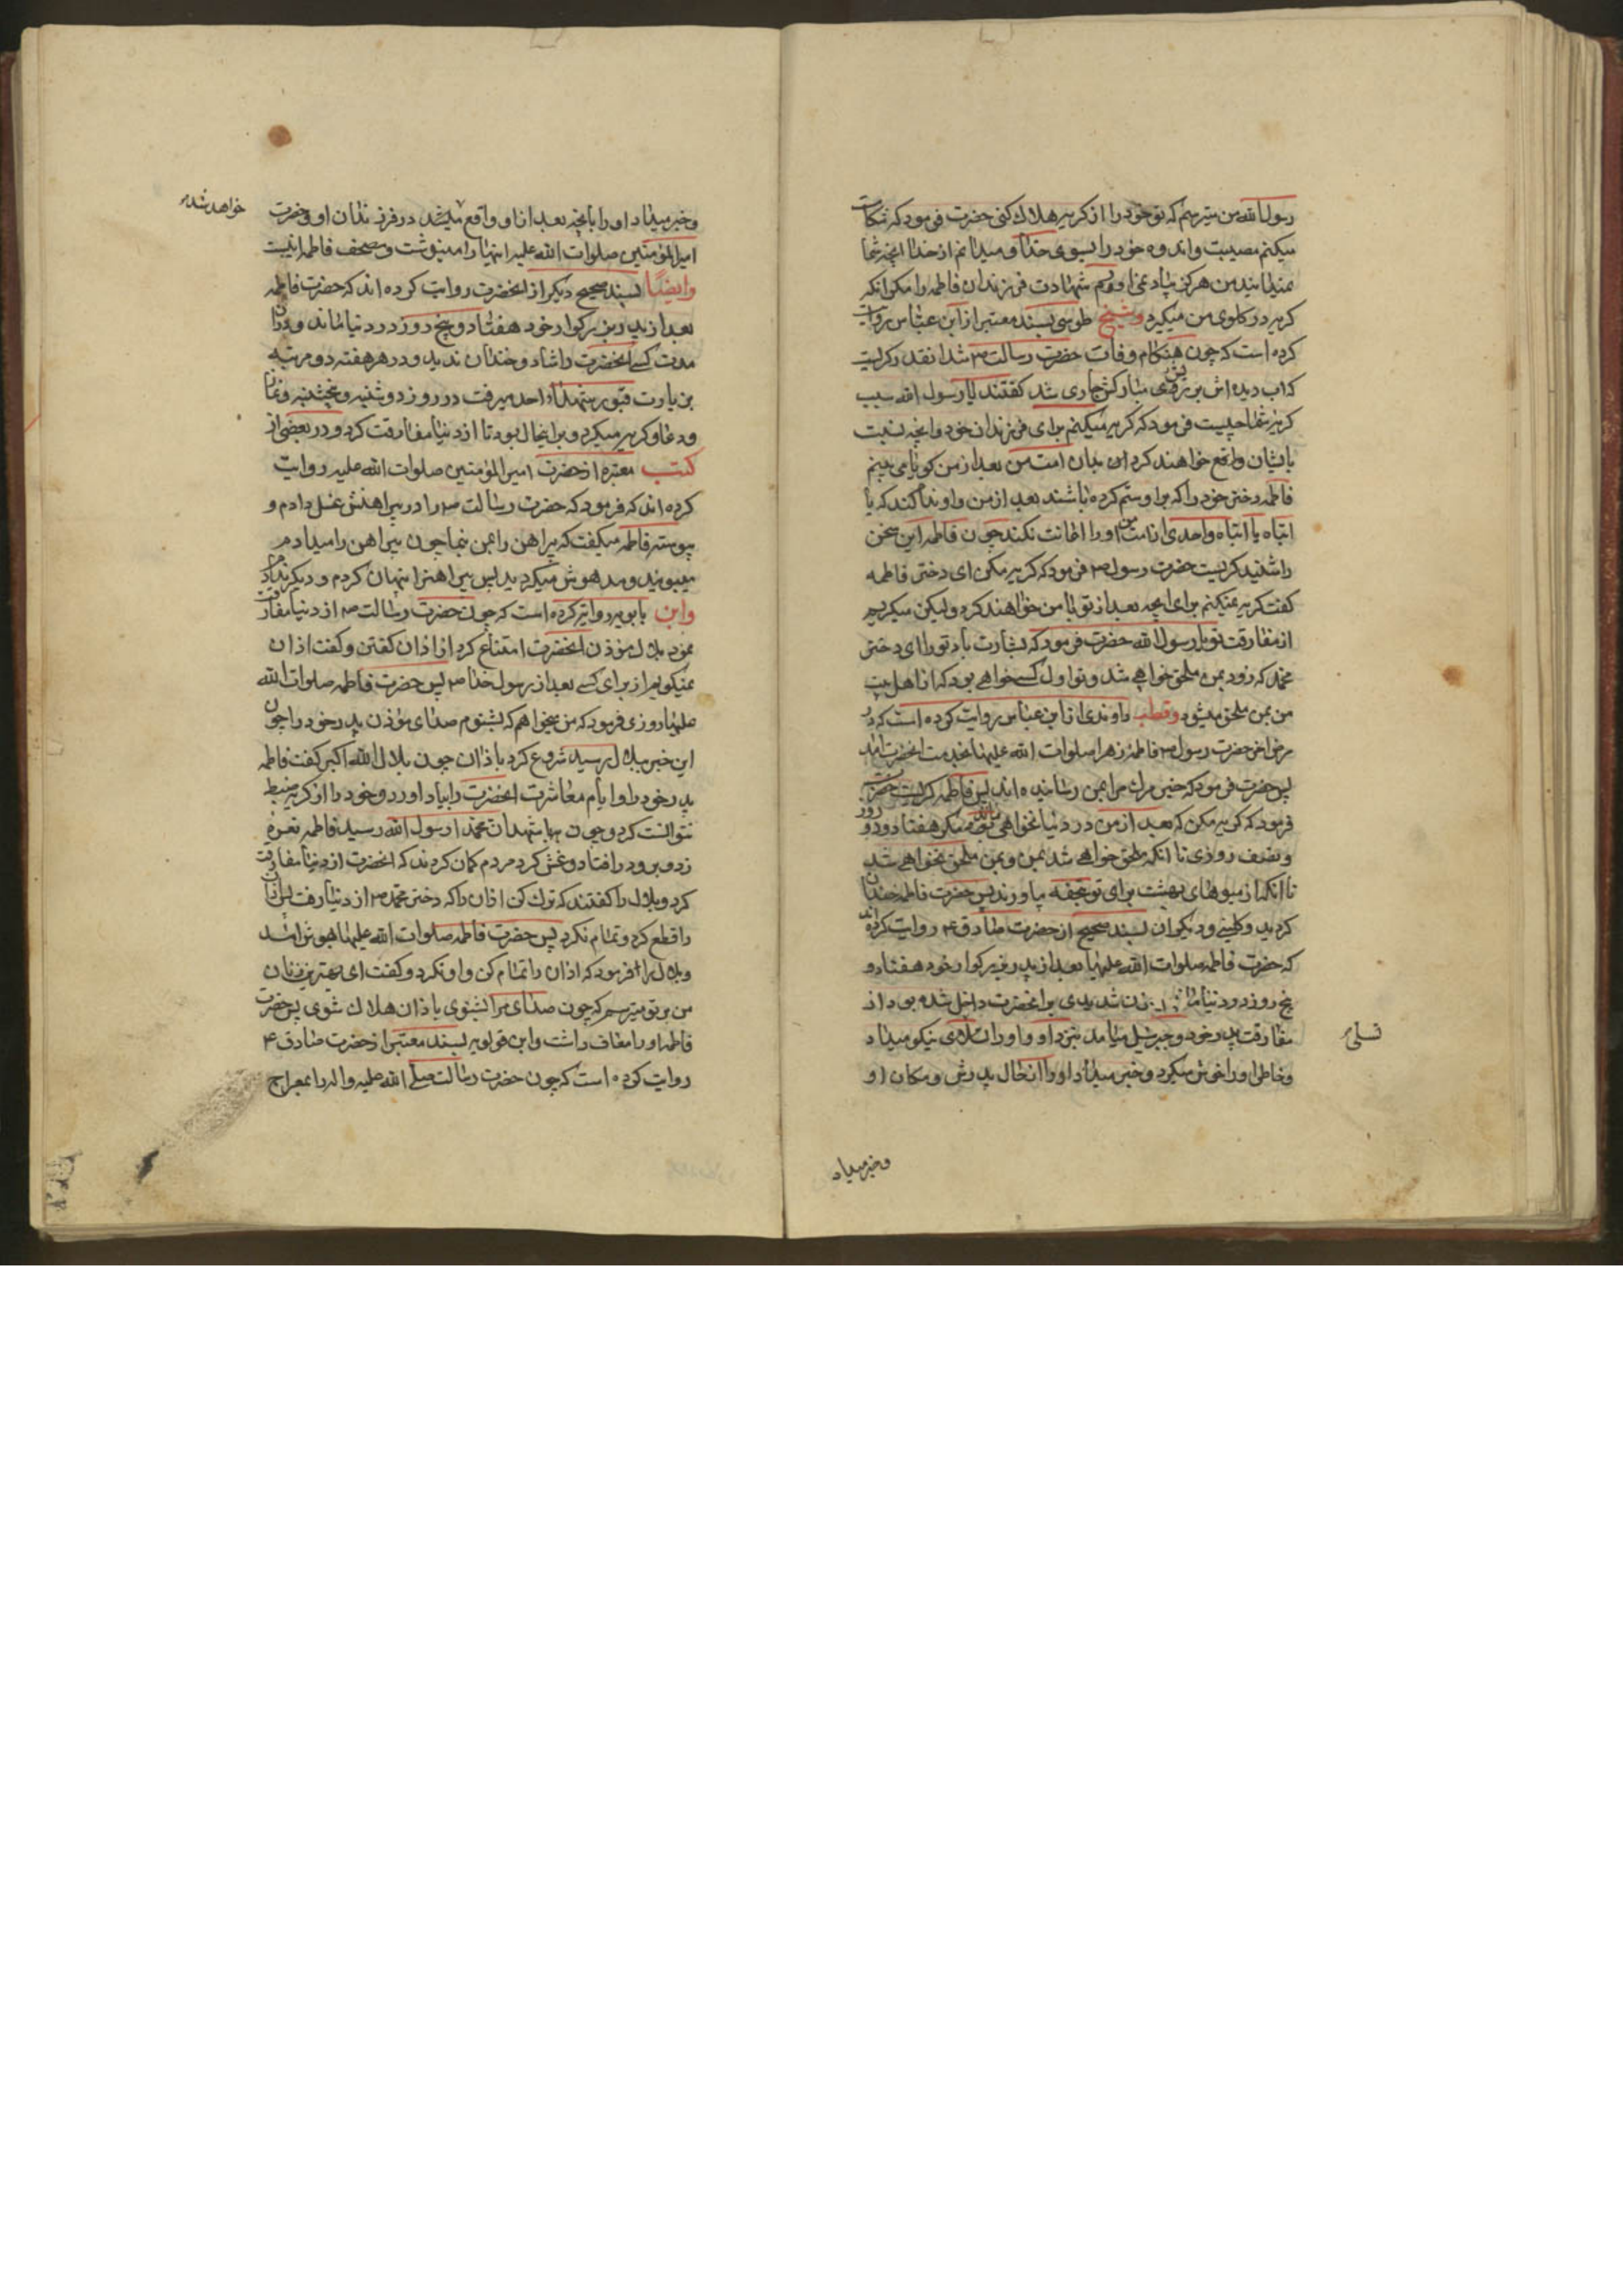 رسول الله من میترسم که تو خود را از کریه هلاك کنی حضرت فرمود که شکایت
میکنم مصیبت و اندوه خود را بسوی خدا و میدانم از خدا انچه شما
نمیدانید من هرکز بیاد نمی اورم شهادت فرزندان فاطمه را مکر انکه
کریه در کلوی من میکیرد و شیخ طوسی بسند معتبر از ابن عباس روایت
کرده است که چون هنکام وفات حضرت رسالت ص شد انقدر کریست
که اب دیده اش بر ریش مبارکش جاری شد کفتند یا رسول الله سبب
کریه شما چیست فرمود که کریه میکنم برای فرزندان خود و انچه نسبت
بایشان واقع خواهند کرد امت من بعد از من کویا می بینم
فاطمه دختر خود را که بر او ستم کرده باشند بعد از من و او ندا کند که یا
ابتاه یا ابتاه و احدی از امت من او را اعانت نکند چون فاطمه این سخن
را شنید کریست حضرت رسول ص فرمود که کریه مکن ای دختر فاطمه
کفت کریه نمیکنم برای انچه بعد از تو با من خواهند کرد ولیکن میکریم
از مفارقت تو یا رسول الله حضرت فرمود که بشارت باد تو را ای دختر
محمد که زود بمن ملحق خواهی شد و تو اول کسی خواهی بود که از اهل بیت
من بمن ملحق میشود و قطب راوندی از ابن عباس روایت کرده است که در
مرض اخر حضرت رسول ص فاطمه زهرا صلوات الله علیها بخدمت انحضرت امد
پس حضرت فرمود که خبر مرك مرا بمن رسانیده اند پس فاطمه کریست حضرت
فرمود که کریه مکن که بعد از من در دنیا نخواهی ماند مکر هفتاد و دو روز
و نصف روزی تا انکه ملحق خواهی شد بمن و بمن ملحق نخواهی شد
تا انکه از میوهای بهشت برای تو تحفه بیاورند پس حضرت فاطمه خندان
کردید و کلینی و دیکران بسند صحیح از حضرت صادق ع روایت کرده اند
که حضرت فاطمه صلوات الله علیها بعد از پدر بزرکوار خود هفتاد و
پنج روز در دنیا ماند حزن شدیدی بر انحضرت داخل شده بود از
مفارقت پدر خود و جبرئیل میامد بنزد او و او را تسلای نیکو میداد
تسلی
و خاطر او را خوش میکرد و خبر میداد او را از حال پدرش و مکان او
و خبر میداد
و خبر میداد او را بانچه بعد از او واقع میشد در فرزندان او و حضرت
خواهد شد
امیرالمؤمنین صلوات الله علیه اینها را مینوشت و مصحف فاطمه اینست
وایضا بسند صحیح دیکر از انحضرت روایت کرده اند که حضرت فاطمه
بعد از پدر بزرکوار خود هفتاد و پنج روز در دنیا ماند و در ان
مدت کسی انحضرت را شاد و خندان ندید و در هر هفته دو مرتبه
بزیارت قبور شهداء احد میرفت در روز دوشنبه و پنجشنبه و نماز
و دعا و کریه میکرد و بر اینحال بود تا از دنیا مفارقت کرد و در بعضی از
کتب معتبره از حضرت امیرالمؤمنین صلوات الله علیه روایت
کرده اند که فرمود که حضرت رسالت ص را در پیراهنش غسل دادم و
پیوسته فاطمه میکفت که پیراهن را بمن بنما چون پیراهن را میدادم
میبویید و مدهوش میکردید پس پیراهن را پنهان کردم و دیکر ندادم
وابن بابویه روایت کرده است که چون حضرت رسالت ص از دنیا مفارقت
نمود بلال مؤذن انحضرت امتناع کرد از اذان کفتن و کفت اذان
نمیکویم از برای کسی بعد از رسول خدا ص پس حضرت فاطمه صلوات الله
علیها روزی فرمود که من میخواهم که بشنوم صدای مؤذن پدر خود را چون
این خبر ببلال رسید شروع کرد باذان چون بلال الله اکبر کفت فاطمه
پدر خود را و ایام معاشرت انحضرت را بیاد اورد و خود را از کریه ضبط
نتوانست کرد و چون به اشهد ان محمدا رسول الله رسید فاطمه نعره
زد و برو در افتاد و غش کرد مردم کمان کردند که انحضرت از دنیا مفارقت
کرد و بلال را کفتند که ترك کن اذان را که دختر محمد ص از دنیا رفت پس اذان
را قطع کرد و تمام نکرد پس حضرت فاطمه صلوات الله علیها بهوش امد
و بلال را فرمود که اذان را تمام کن و او نکرد و کفت ای بهترین زنان
من بر تو میترسم که چون صدای مرا بشنوی باذان هلاك شوی پس حضرت
فاطمه او را معاف داشت و ابن قولویه بسند معتبر از حضرت صادق ع
روایت کرده است که چون حضرت رسالت صلی الله علیه واله را بمعراج